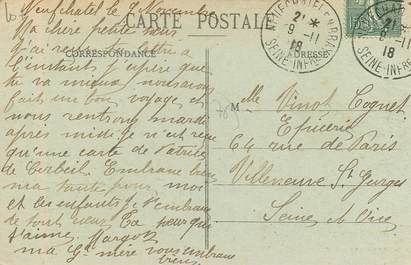 Neufchatel le 9 Novembre
CARTE POSTALE
Ma chère petite sœur
J'ai reçu ta lettre à
CORRESPONDANCE
ADRESSE
l'instant j'espère que
tu va mieux nous avons
fait un bon voyage, et
nous rentrons mardi
après midi je n'ai reçu
qu'une carte de Patrice
de Corbeil Embrasse bien
ma tante pour moi
et les enfants je t'embrasse
de tout cœur Ta sœur qui
t'aime Margot
ma Gd mère vous embrasse
bien
NEUFCHATEL-EN-BRAY
2T *
9 -11
18
SEINE-INFRE
2T
9 -11
18
SEINE-INFRE
M elle Vinot Cognet
Epicerie
64 rue de Paris
Villeneuve St Georges
Seine et Oise